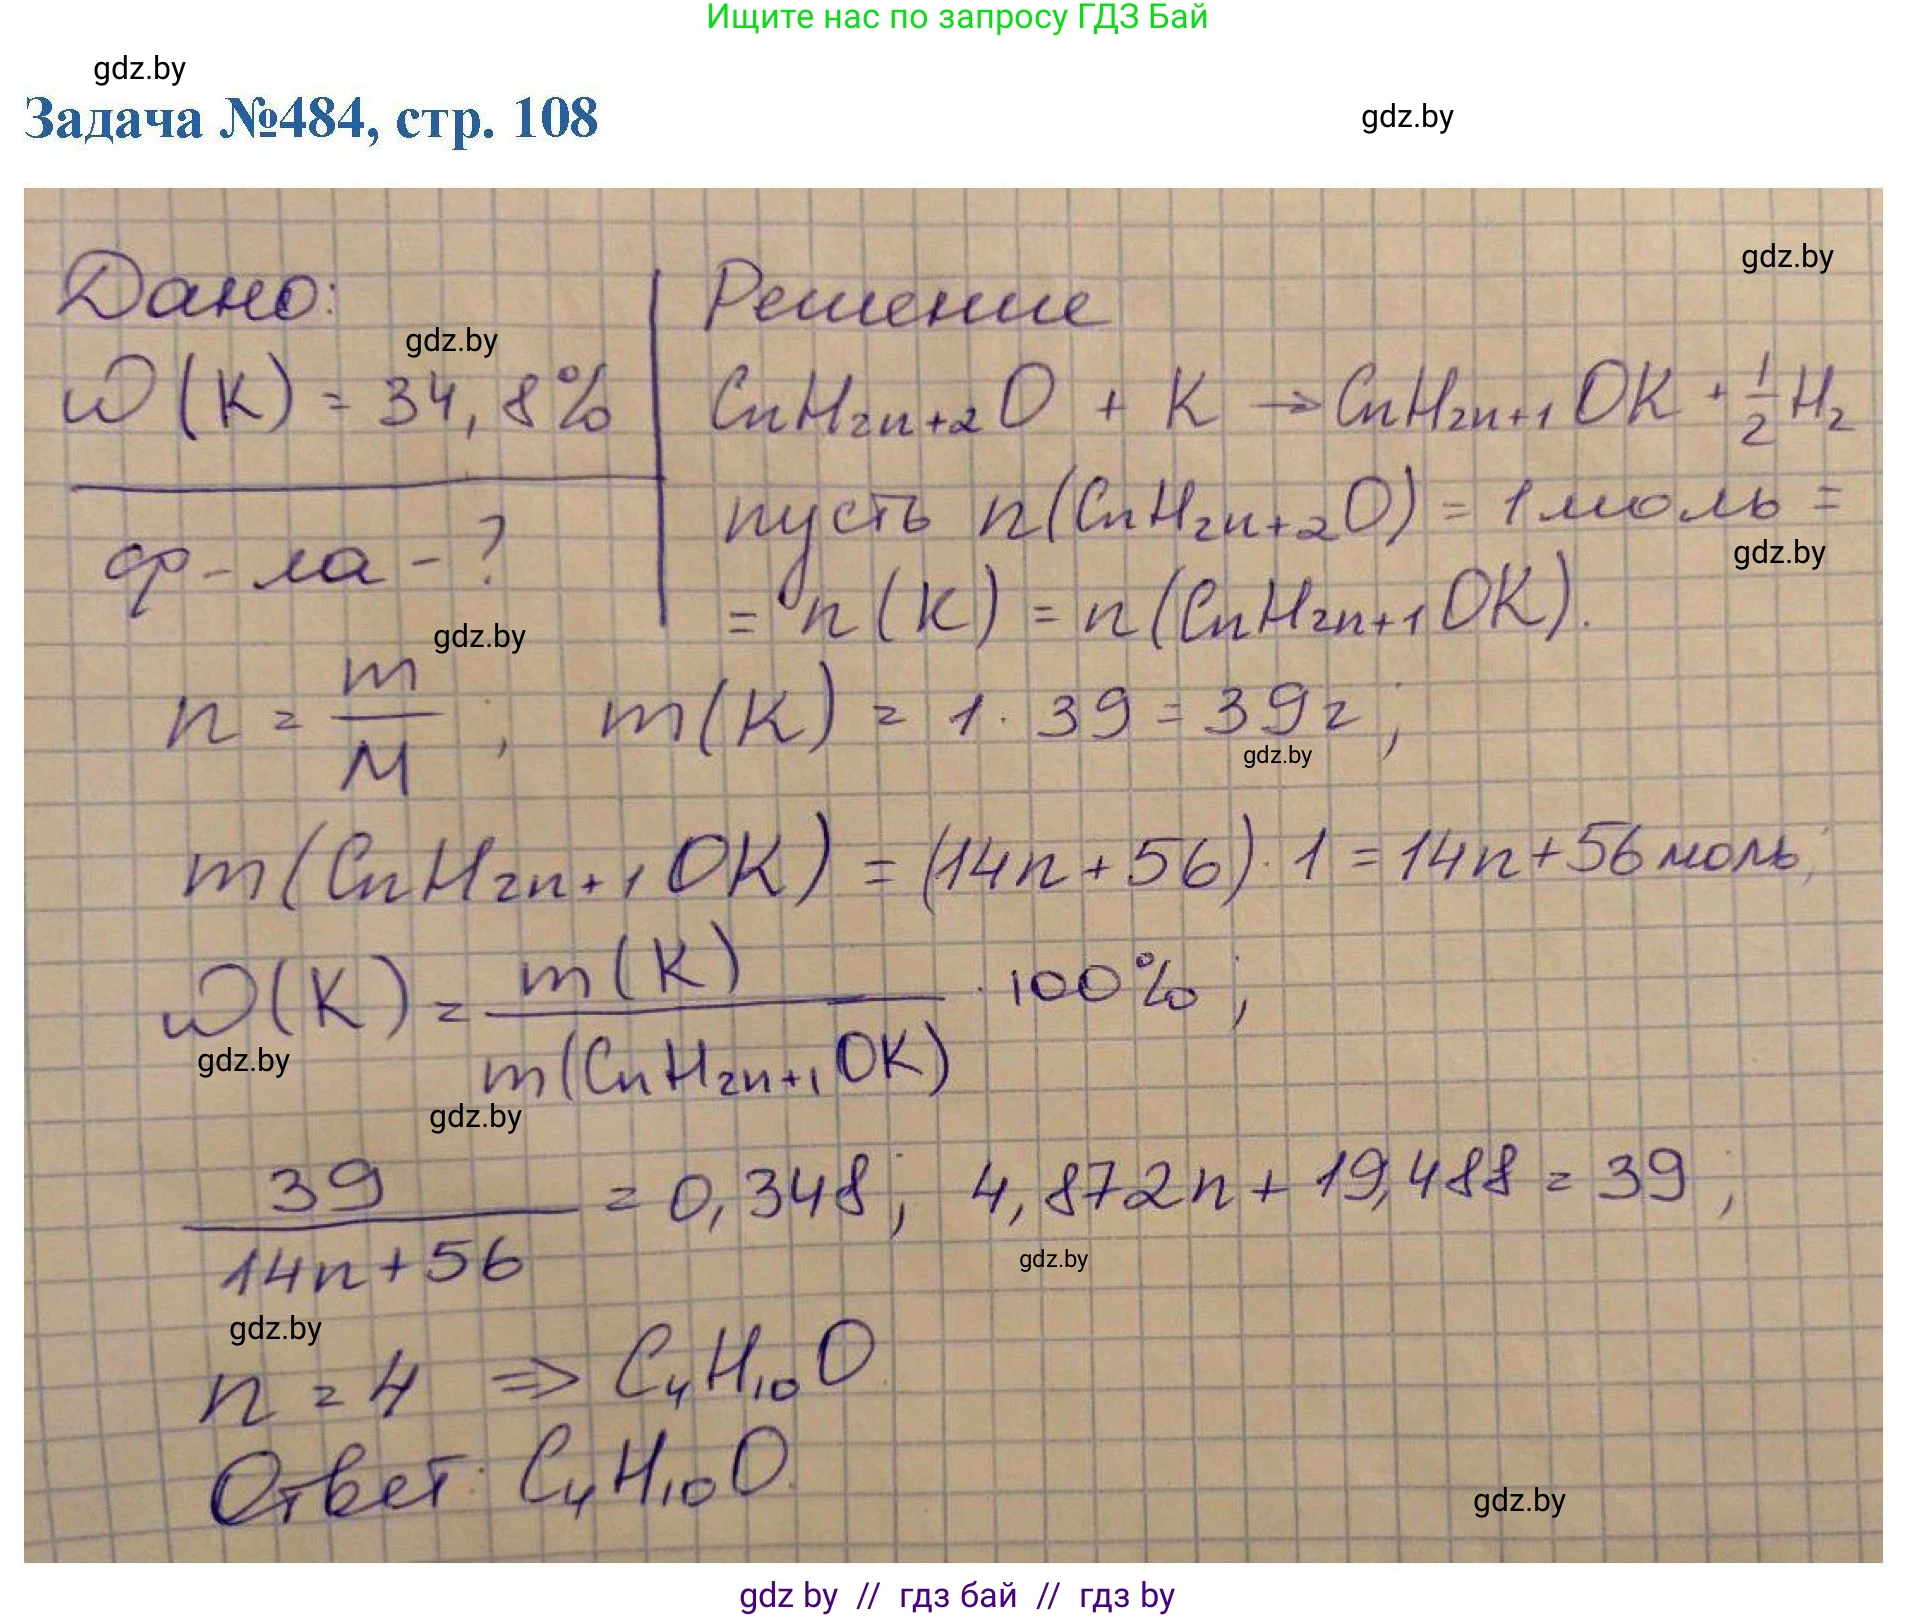 Ищите нас по запросу ГДЗ Бай
gdz.by
Задача №484, стр. 108
gdz.by
gdz.by
Дано:
Решение
gdz.by
ω(K) = 34,8%
CnH2n+2O + K → CnH2n+1OK + 1/2 H2
пусть n(CnH2n+2O) = 1 моль =
ф-ла - ?
gdz.by
= n(K) = n(CnH2n+1OK).
gdz.by
n = m/M ; m(K) = 1 · 39 = 39 г ;
gdz.by
m(CnH2n+1OK) = (14n + 56) · 1 = 14n + 56 моль;
ω(K) = m(K)/m(CnH2n+1OK) · 100% ;
gdz.by
gdz.by
39/(14n+56) = 0,348 ; 4,872n + 19,488 = 39 ;
gdz.by
gdz.by
n = 4 ⇒ C4H10O
Ответ: C4H10O.
gdz.by
gdz by // гдз бай // гдз by